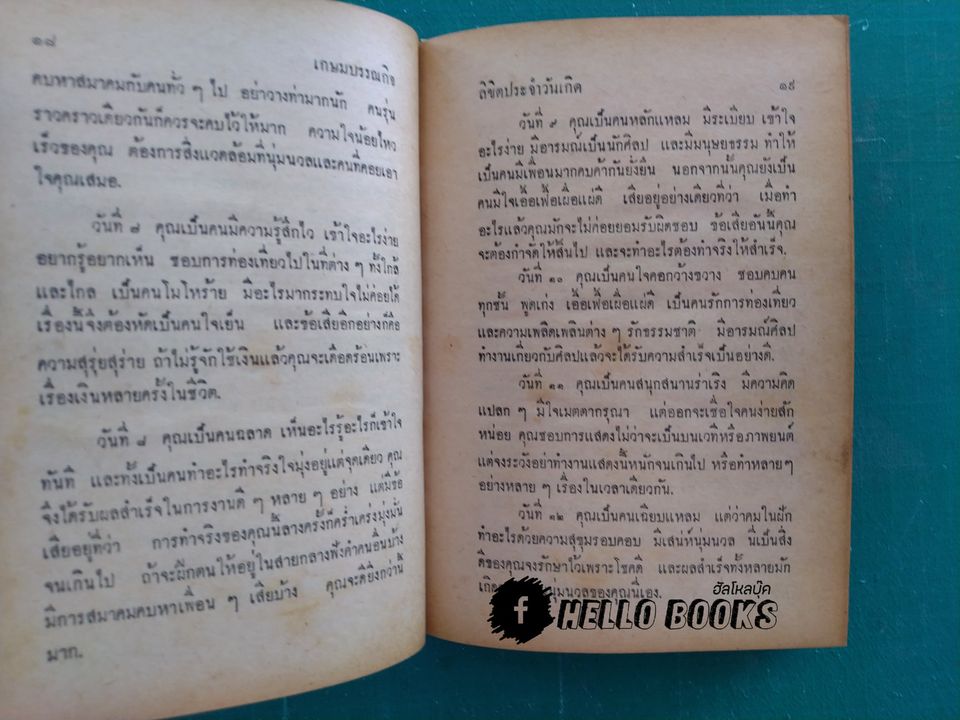 ๑๘
เกษมบรรณกิจ
คบหาสมาคมกับคนทั่ว ๆ ไป อย่าวางท่ามากนัก คนรุ่น
ราวคราวเดียวกันก็ควรจะคบไว้ให้มาก ความใจน้อยไหว
เร็วของคุณ ต้องการสิ่งแวดล้อมที่นุ่มนวลและคนที่คอยเอา
ใจคุณเสมอ.
วันที่ ๗ คุณเป็นคนมีความรู้สึกไว เข้าใจอะไรง่าย
อยากรู้อยากเห็น ชอบการท่องเที่ยวไปในที่ต่าง ๆ ทั้งใกล้
และไกล เป็นคนโมโหร้าย มีอะไรมากระทบใจไม่ค่อยได้
เรื่องนี้จึงต้องหัดเป็นคนใจเย็น และข้อเสียอีกอย่างก็คือ
ความสุรุ่ยสุร่าย ถ้าไม่รู้จักใช้เงินแล้วคุณจะเดือดร้อนเพราะ
เรื่องเงินหลายครั้งในชีวิต.
วันที่ ๘ คุณเป็นคนฉลาด เห็นอะไรรู้อะไรก็เข้าใจ
ทันที และทั้งเป็นคนทำอะไรทำจริงใจมุ่งอยู่แต่จุดเดียว คุณ
จึงได้รับผลสำเร็จในการงานดี ๆ หลาย ๆ อย่าง แต่มีข้อ
เสียอยู่ที่ว่า การทำจริงของคุณนี้ลางครั้งก็คร่ำเคร่งมุ่งมั่น
จนเกินไป ถ้าจะฝึกตนให้อยู่ในสายกลางฟังคำคนอื่นบ้าง
มีการสมาคมคบหาเพื่อน ๆ เสียบ้าง คุณจะดียิ่งกว่านี้
มาก.
ลิขิตประจำวันเกิด
๑๙
วันที่ ๙ คุณเป็นคนหลักแหลม มีระเบียบ เข้าใจ
อะไรง่าย มีอารมณ์เป็นนักศิลป และมีมนุษยธรรม ทำให้
เป็นคนมีเพื่อนมากคบค้ากันยั่งยืน นอกจากนั้นคุณยังเป็น
คนมีใจเอื้อเฟื้อเผื่อแผ่ดี เสียอยู่อย่างเดียวที่ว่า เมื่อทำ
อะไรแล้วคุณมักจะไม่ค่อยยอมรับผิดชอบ ข้อเสียอันนี้คุณ
จะต้องกำจัดให้สิ้นไป และจะทำอะไรต้องทำจริงให้สำเร็จ.
วันที่ ๑๐ คุณเป็นคนใจคอกว้างขวาง ชอบคบคน
ทุกชั้น พูดเก่ง เอื้อเฟื้อเผื่อแผ่ดี เป็นคนรักการท่องเที่ยว
และความเพลิดเพลินต่าง ๆ รักธรรมชาติ มีอารมณ์ศิลป
ทำงานเกี่ยวกับศิลปแล้วจะได้รับความสำเร็จเป็นอย่างดี.
วันที่ ๑๑ คุณเป็นคนสนุกสนานร่าเริง มีความคิด
แปลก ๆ มีใจเมตตากรุณา แต่ออกจะเชื่อใจคนง่ายสัก
หน่อย คุณชอบการแสดงไม่ว่าจะเป็นบนเวทีหรือภาพยนต์
แต่จงระวังอย่าทำงานแสดงนี้หนักจนเกินไป หรือทำหลายๆ
อย่างหลาย ๆ เรื่องในเวลาเดียวกัน.
วันที่ ๑๒ คุณเป็นคนเฉียบแหลม แต่ว่าคมในฝัก
ทำอะไรด้วยความสุขุมรอบคอบ มีเสน่ห์นุ่มนวล นี่เป็นสิ่ง
ดีของคุณจงรักษาไว้เพราะโชคดี และผลสำเร็จทั้งหลายมัก
นุ่มนวลของคุณนี่เอง.
ฮัลโหลบุ๊ค
f HELLO BOOKS